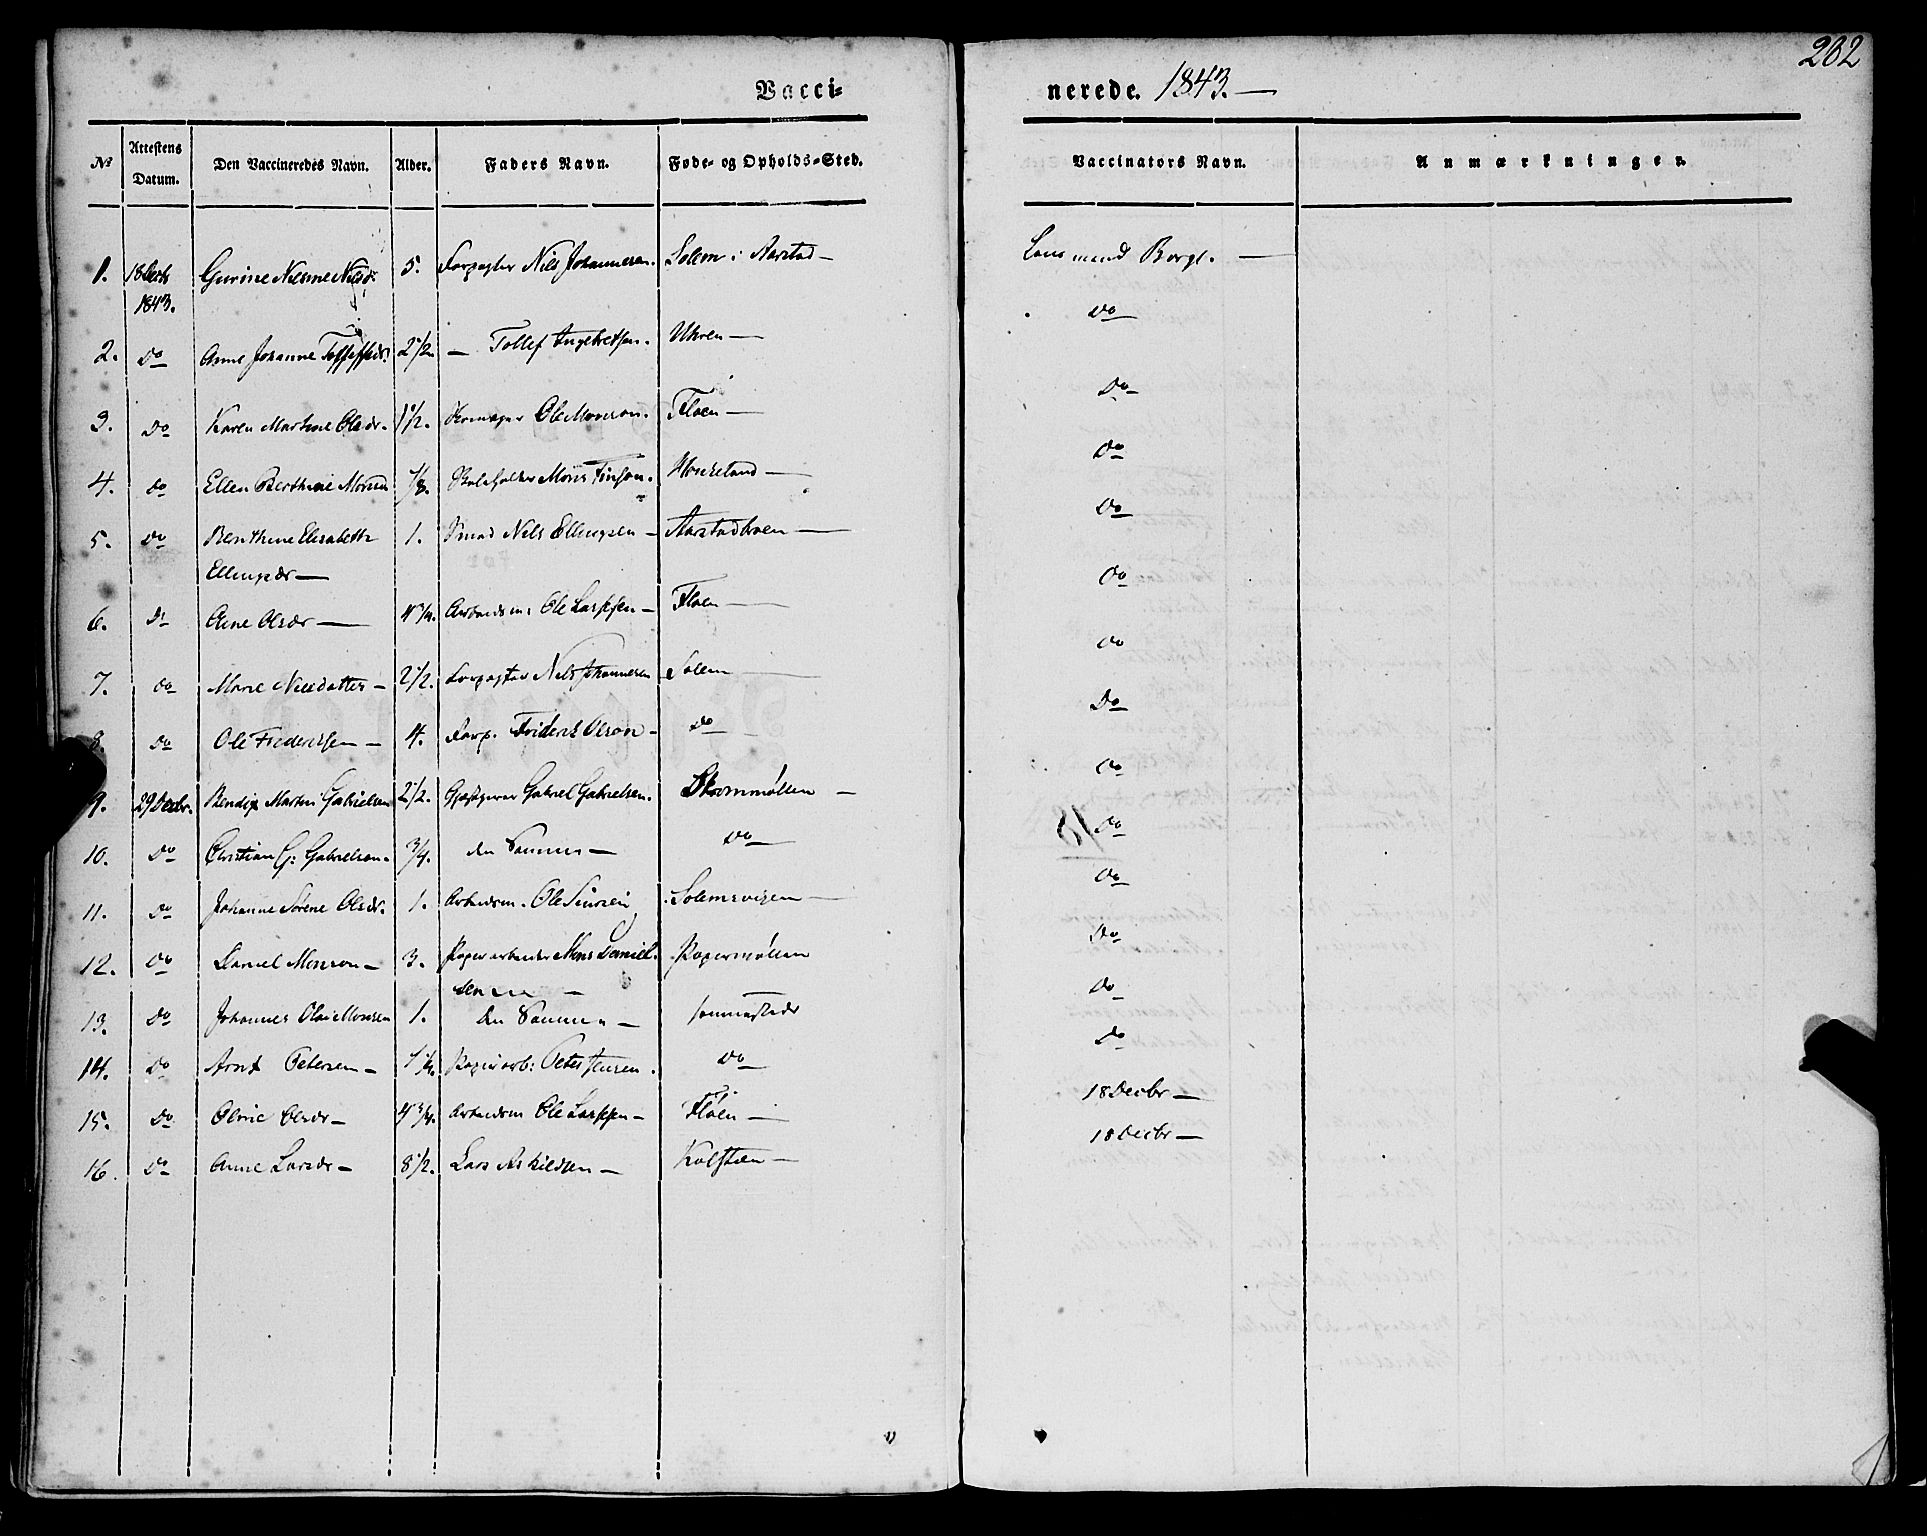 202
Vacci-
nerede. 1843. —
No Attestens Datum. Den Vaccineredes Navn. Alder. Faders Navn. Føde- og Opholds-Sted. Vaccinators Navn. Anmærkninger.
1. 18 Decbr 5. Forpagter Nils Johannesen. Solem i Aarstad — Lensmand Borge. —
1843.
2. Do Anne Johanne 2 1/2 — Tollef Ingebretsen. Uhren — Do
3. Do Karen Martine Olsdr. 1 1/2. Ole Monsen. Floen — Do
4. Do Ellen Berthine 7/8. Haukeland — Do
5. Do Benthine Elisabeth 1. Smed Nils Ellingsen — Aarstadvoen — Do
Ellingsdr —
6. Do Olsdr — 4 3/4. Arbeidsm: Ole Larssen — Floen — Do
7. Do Marie Nilsdatter — 2 1/2. Forpagter Nils Johannesen Solem — Do
8. Do Ole Frederiksen — 4. Forp. Friderik Olson — Do Do
9. 29 Decbr. Bendix Martin Gabrielsen 2 1/2. Gabriel Gabrielsen. — Do
10. Do Christian G: Gabrielsen. 3/4. den Samme — Do Do
11. Do Johanne Sørene Olsdr. 1. Arbeidsm. Ole Solemsvigen — Do
12. Do Daniel Monson — 3. Papirarbeider Mons Daniel- Papermøllen Do
sen —
13. Do Johannes Olai Monsen 1. den Samme — sammested Do
14. Do Arnt Petersen — 7 1/4. Papirarb: Peter Jensen. Do Do
15. Do Olsdr — 4 3/4. Arbeidsm Ole Larssen — Fløen — 18 Decbr —
16. Do Anne Larsdr — 8 1/2. Lars Askildsen — Kalfaren — 18 Decbr —